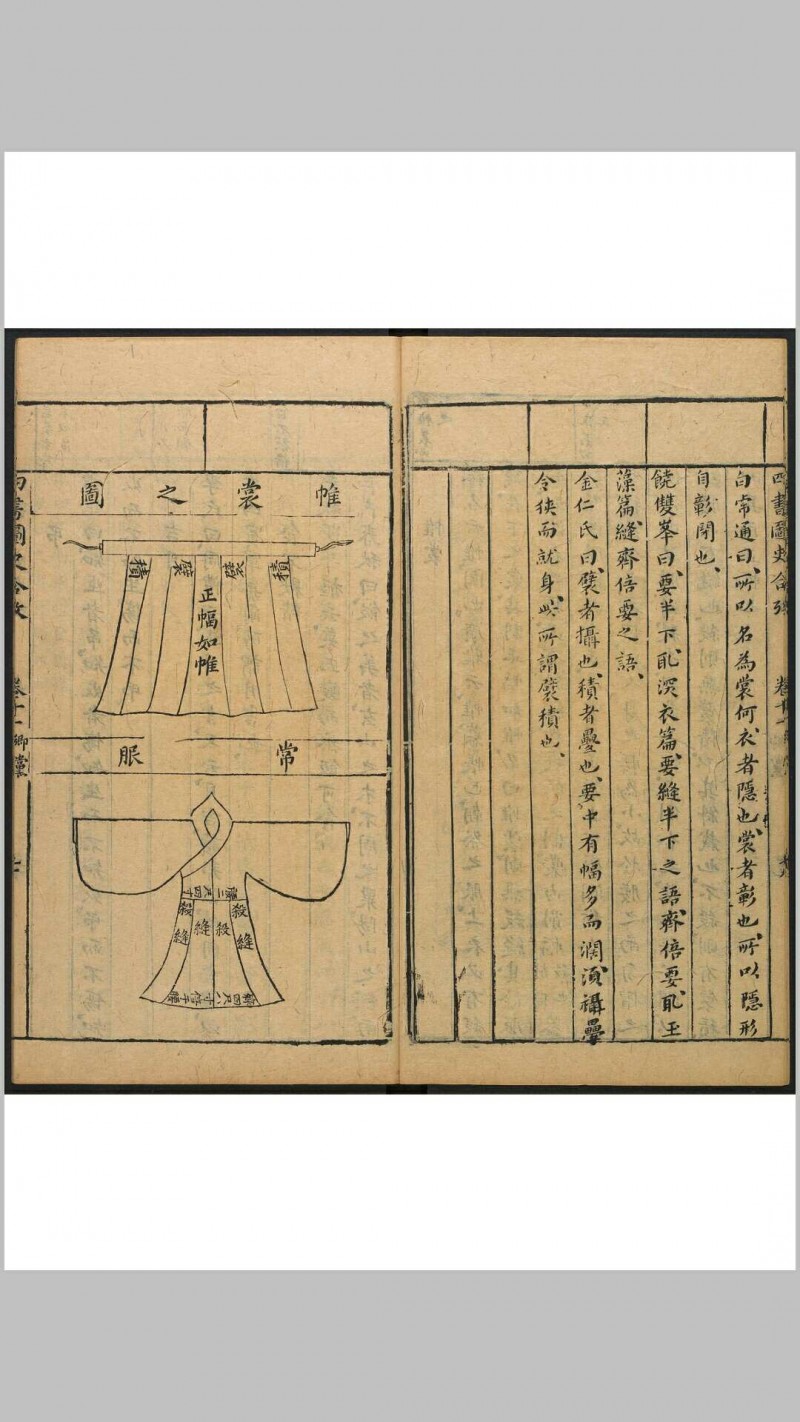 四書圖史合攷
卷十一
白常通曰、所以名為裳何、衣者隱也、裳者彰也、所以隱形
自彰閉也、
饒雙峯曰、要半下、取深衣篇、要縫半下之語、齊倍要、取玉
藻篇、縫齊倍要之語、
金仁氏曰、襞者攝也、積者疊也、要中有幅多而濶、須襵疊
令狹而就身、此所謂襞積也、
帷裳之圖
積
襞
襞
積
正幅如帷
常服
腰二尺四寸
殺縫
殺
縫
殺縫
卷十一
鄉黨